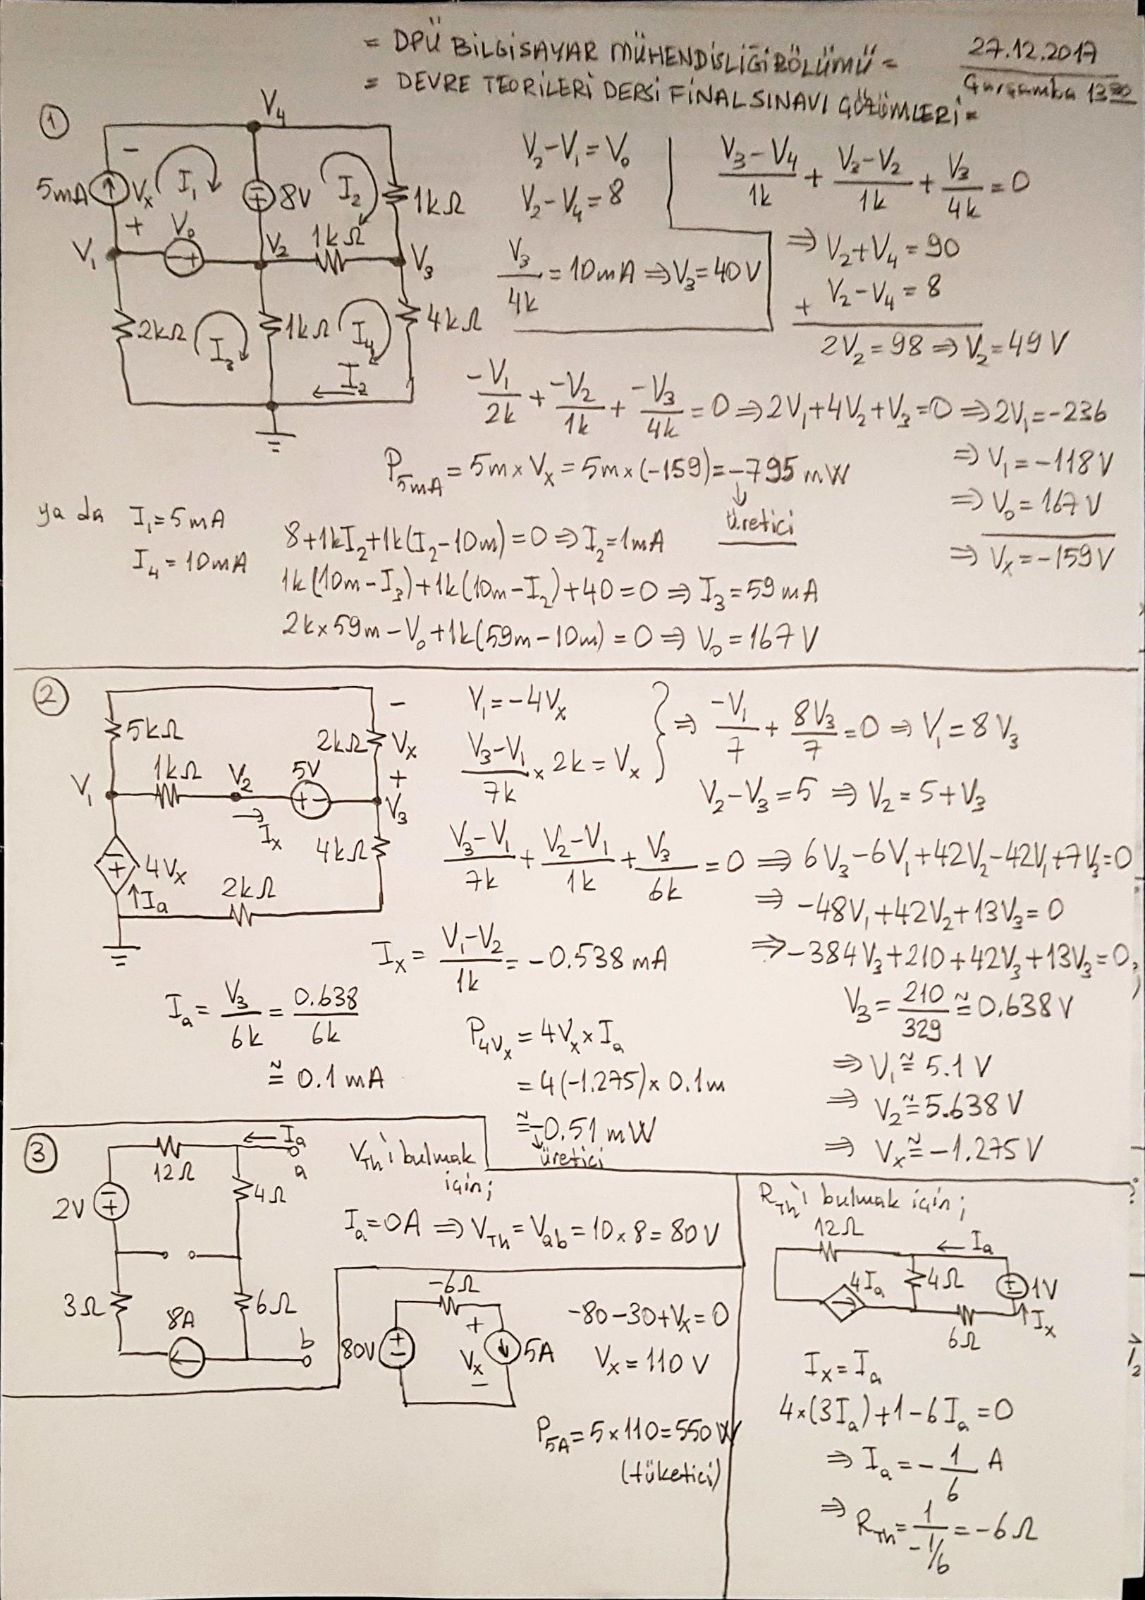 = DPÜ BİLGİSAYAR MÜHENDİSLİĞİ BÖLÜMÜ =
= DEVRE TEORİLERİ DERSİ FİNAL SINAVI ÇÖZÜMLERİ =
27.12.2017
Çarşamba 13:00
1
V4
5mA
Vx
-
+
I1
8V
I2
1kΩ
V1
V0
V2
1kΩ
V3
2kΩ
I3
1kΩ
I4
4kΩ
I2
V2-V1=V0
V2-V4=8
V3/4k=10mA⇒V3=40V
(V3-V4)/1k+(V3-V2)/1k+V3/4k=0
⇒V2+V4=90
+ V2-V4=8
2V2=98⇒V2=49V
-V1/2k+-V2/1k+-V3/4k=0⇒2V1+4V2+V3=0⇒2V1=-236
⇒V1=-118V
⇒V0=167V
⇒Vx=-159V
P5mA=5m×Vx=5m×(-159)=-795mW
üretici
ya da I1=5mA
I4=10mA
8+1kI2+1k(I2-10m)=0⇒I2=1mA
1k(10m-I3)+1k(10m-I2)+40=0⇒I3=59mA
2k×59m-V0+1k(59m-10m)=0⇒V0=167V
2
5kΩ
2kΩ
-
Vx
+
V1
1kΩ
V2
5V
V3
Ix
4Vx
Ia
4kΩ
2kΩ
V1=-4Vx
(V3-V1)/7k×2k=Vx
} ⇒ -V1/7+8V3/7=0⇒V1=8V3
V2-V3=5⇒V2=5+V3
(V3-V1)/7k+(V2-V1)/1k+V3/6k=0⇒6V3-6V1+42V2-42V1+7V3=0
⇒-48V1+42V2+13V3=0
⇒-384V3+210+42V3+13V3=0
V3=210/329≅0.638V
⇒V1≅5.1V
⇒V2≅5.638V
⇒Vx≅-1.275V
Ix=(V1-V2)/1k=-0.538mA
Ia=V3/6k=0.638/6k
≅0.1mA
P4Vx=4Vx×Ia
=4(-1.275)×0.1m
≅-0.51mW
üretici
3
12Ω
Ia
a
2V
4Ω
3Ω
8A
6Ω
b
VTh'ı bulmak
için;
Ia=0A⇒VTh=Vab=10×8=80V
-6Ω
80V
+
Vx
-
5A
-80-30+Vx=0
Vx=110V
P5A=5×110=550W
(tüketici)
RTh'ı bulmak için;
12Ω
Ia
4Ia
4Ω
1V
6Ω
Ix
Ix=Ia
4×(3Ia)+1-6Ia=0
⇒Ia=-1/6 A
⇒RTh=1/(-1/6)=-6Ω